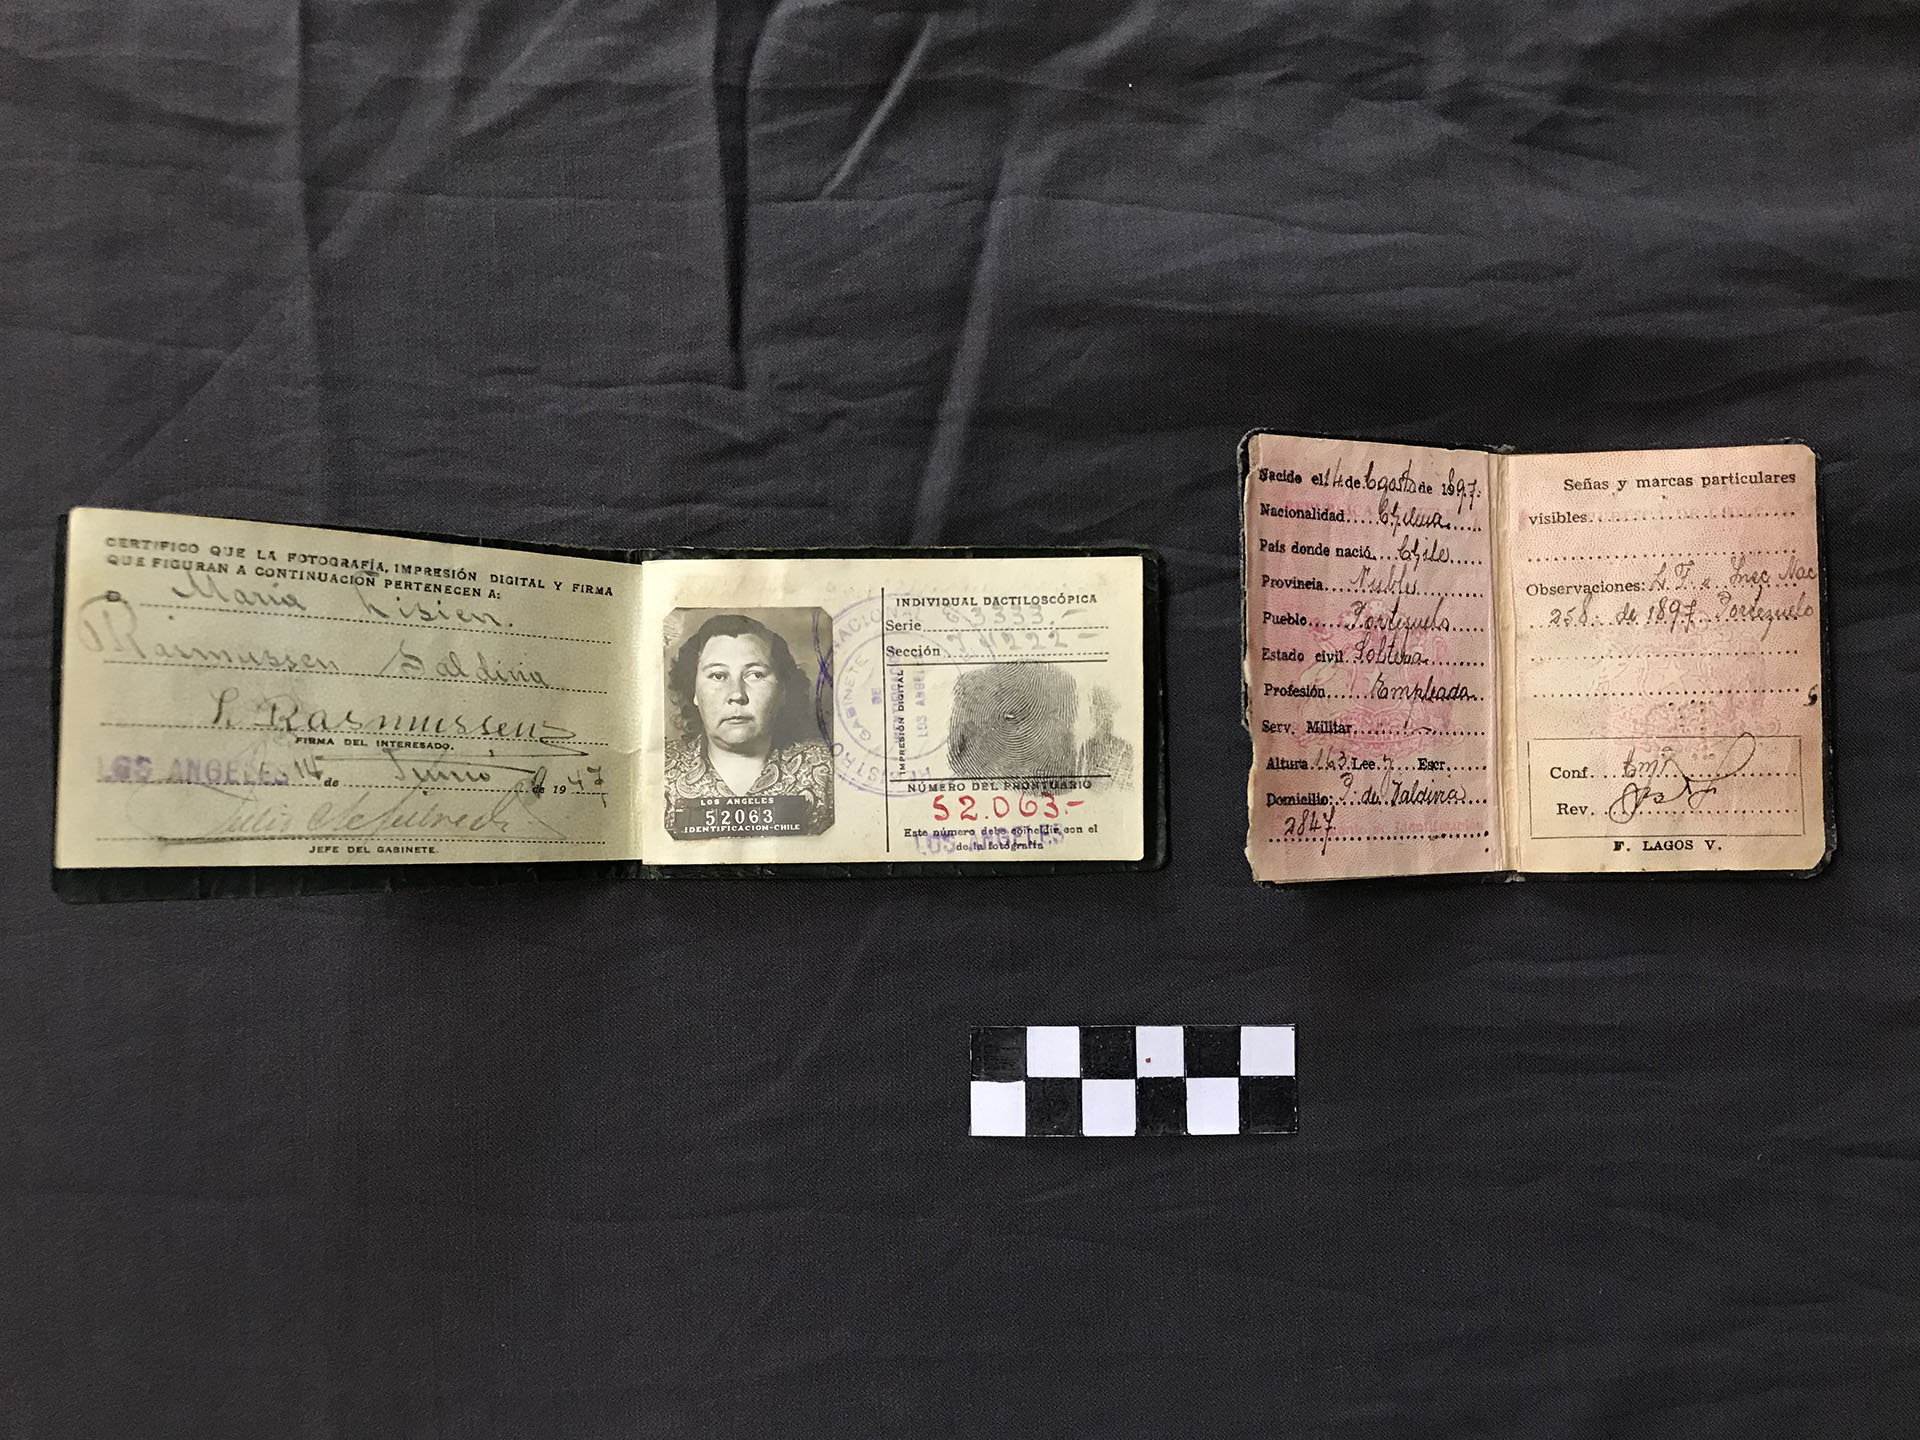 CERTIFICO QUE LA FOTOGRAFÍA, IMPRESIÓN DIGITAL Y FIRMA
QUE FIGURAN A CONTINUACIÓN PERTENECEN A:
Maria Lisien.
Rasmussen Saldivia
L. Rasmussen
FIRMA DEL INTERESADO.
LOS ANGELES 14 de Junio de 1947
JEFE DEL GABINETE.
LOS ANGELES
52063
IDENTIFICACION-CHILE
REGISTRO NACIONAL
GABINETE DE IDENTIFICACION
LOS ANGELES
INDIVIDUAL DACTILOSCÓPICA
Serie E,3333.-
Sección 4222-
IMPRESIÓN DIGITAL
NÚMERO DEL PRONTUARIO
52.063-
Este número debe coincidir con el
de la fotografía
LOS ANGELES
Nacido el 14 de Agosto de 1897.
Nacionalidad Chilena
País donde nació Chile
Provincia Ñuble
Pueblo Portezuelo
Estado civil Soltera
Profesión Empleada
Serv. Militar -
Altura 1.63 Lee Escr.
Domicilio: P. de Valdivia
2847
Señas y marcas particulares
visibles
Observaciones: L. F. Insc. Nac
258 de 1897 Portezuelo
Conf.
Rev.
F. LAGOS V.